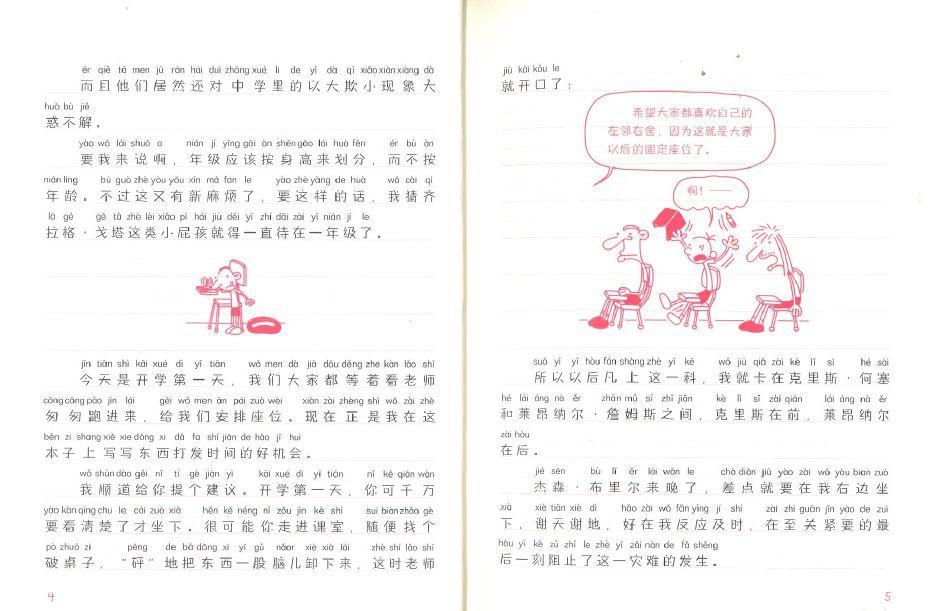 ér qiě tā men jū rán hái duì zhōng xué li de yǐ dà qī xiǎo xiàn xiàng dà
而且他们居然还对中学里的以大欺小现象大
huò bù jiě
惑不解。
yào wǒ lái shuō a nián jí yīng gāi àn shēn gāo lái huà fēn ér bù àn
要我来说啊，年级应该按身高来划分，而不按
nián líng bú guò zhè yòu yǒu xīn má fan le yào zhè yàng de huà wǒ cāi qí
年龄。不过这又有新麻烦了，要这样的话，我猜齐
lā gé gē tǎ zhè lèi xiǎo pì hái jiù děi yì zhí dāi zài yì nián jí le
拉格·戈塔这类小屁孩就得一直待在一年级了。
jīn tiān shì kāi xué dì yī tiān wǒ men dà jiā dōu děng zhe kàn lǎo shī
今天是开学第一天，我们大家都等着看老师
cōng cōng pǎo jìn lái gěi wǒ men ān pái zuò wèi xiàn zài zhèng shì wǒ zài zhè
匆匆跑进来，给我们安排座位。现在正是我在这
běn zi shang xiě xie dōng xi dǎ fa shí jiān de hǎo jī huì
本子上写写东西打发时间的好机会。
wǒ shùn dào gěi nǐ tí gè jiàn yì kāi xué dì yī tiān nǐ kě qiān wàn
我顺道给你提个建议。开学第一天，你可千万
yào kàn qīng chu le cái zuò xià hěn kě néng nǐ zǒu jìn kè shì suí biàn zhǎo gè
要看清楚了才坐下。很可能你走进课室，随便找个
pò zhuō zi pēng de bǎ dōng xi yì gǔ nǎor xiè xià lái zhè shí lǎo shī
破桌子，“砰”地把东西一股脑儿卸下来，这时老师
4
jiù kāi kǒu le
就开口了：
希望大家都喜欢自己的
左邻右舍，因为这就是大家
以后的固定座位了。
啊！——
suǒ yǐ yǐ hòu fán shàng zhè yì kē wǒ jiù qiǎ zài kè lǐ sī hé sài
所以以后凡上这一科，我就卡在克里斯·何塞
hé lái áng nà ěr zhān mǔ sī zhī jiān kè lǐ sī zài qián lái áng nà ěr
和莱昂纳尔·詹姆斯之间，克里斯在前，莱昂纳尔
zài hòu
在后。
jié sēn bù lǐ ěr lái wǎn le chà diǎn jiù yào zài wǒ yòu bian zuò
杰森·布里尔来晚了，差点就要在我右边坐
xià xiè tiān xiè dì hǎo zài wǒ fǎn yìng jí shí zài zhì guān jǐn yào de zuì
下，谢天谢地，好在我反应及时，在至关紧要的最
hòu yí kè zǔ zhǐ le zhè yì zāi nàn de fā shēng
后一刻阻止了这一灾难的发生。
5